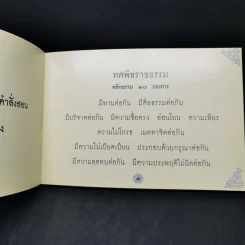 คำสั่งสอน
ง
ทศพิธราชธรรม
หลักธรรม ๑๐ ประการ
มีทานต่อกัน มีศีลธรรมต่อกัน
มีบริจาคต่อกัน มีความซื่อตรง อ่อนโยน ความเพียร
ความไม่โกรธ เมตตาจิตต่อกัน
มีความไม่เบียดเบียน ประกอบด้วยกรุณาต่อกัน
มีความอดทนต่อกัน มีความประพฤติไม่ผิดต่อกัน